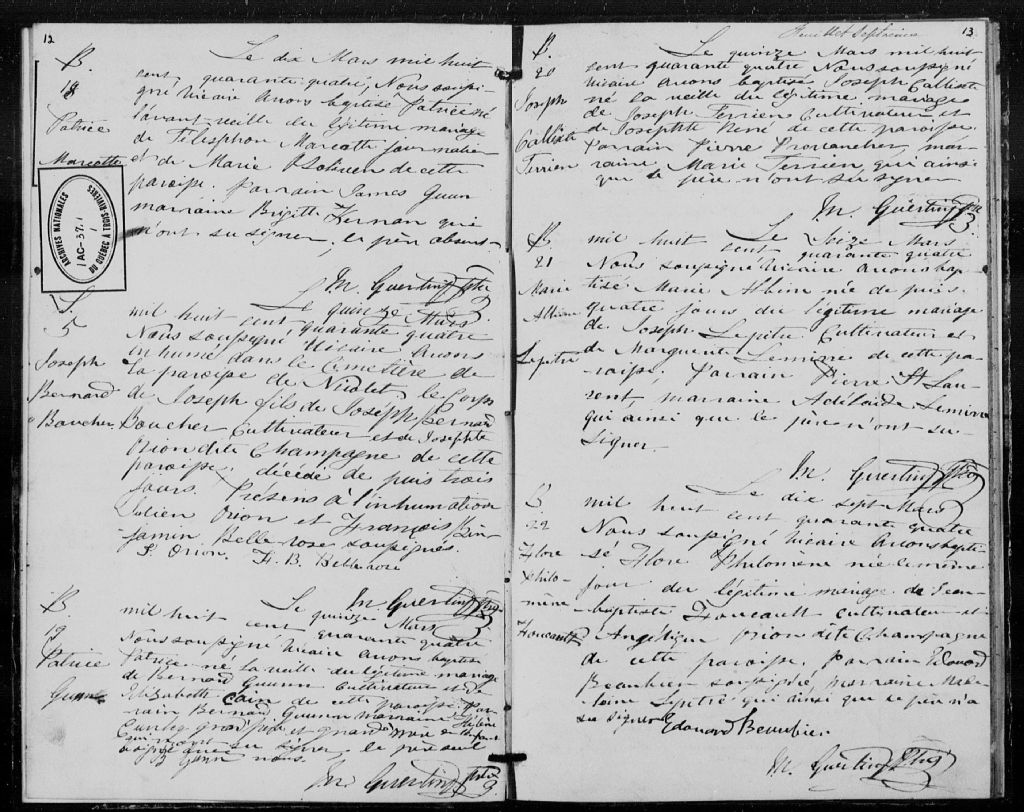 12
B.
18
Patrice
Marcotte
Le dix Mars mil huit
cent quarante quatre, Nous soussi-
gné Vicaire Avons baptisé Patrice né
l'avant veille du légitime mariage
de Télesphon Marcotte Journalier
et de Marie de cette
paroisse. Parrain James Guan
marraine Brigitte Hernan qui
n'ont su signer, le père absent.
M. Guertin Ptre
ARCHIVES NATIONALES
1 AC-37.1
DU QUÉBEC À TROIS-RIVIÈRES
S.
5
Joseph
Bernard
Boucher
Le quinze Mars
mil huit cent quarante quatre
Nous soussigné Vicaire Avons
inhumé dans le Cimetière de
la paroisse de Nicolet, le Corps
de Joseph fils de Joseph Bernard
Boucher Cultivateur et de Josephte
Orion dite Champagne de cette
paroisse, décédé de puis trois
jours. Présens à l'inhumation
Julien Orion et François Bin-
jamin Belle rose soussignés.
J. Orion H. B. Belle rose
M. Guertin Ptre
B
19
Patrice
Guann
Le quinze Mars
mil huit cent quarante quatre
Nous soussigné Vicaire avons baptisé
Patrice né la veille du légitime mariage
de Bernard Guann Cultivateur et d'
Elizabeth de cette paroisse. Par-
rain Bernard Guann Marraine
grand père et grand mère
su signer, le père seul
a signé avec nous.
B Gunn
M Guertin Ptre
Feuillet Septième
13
B.
20
Joseph
Callixte
Terrien
Le quinze Mars mil huit
cent quarante quatre Nous soussigné
Vicaire avons baptisé Joseph Callixte
né la veille du légitime mariage
de Joseph Terrien Cultivateur et
de Josephte René de cette paroisse.
Parrain Pierre Provancher, mar-
raine Marie Terrien, qui ainsi
que le père n'ont su signer
M. Guertin Ptre
B
21
Marie
Albine
Lepitre
Le Seize Mars
mil huit cent quarante quatre
Nous soussigné Vicaire avons bap-
tisé Marie Albine née de puis
quatre jours du légitime mariage
de Joseph Lepitre Cultivateur et
de Marguerite Lemire de cette pa-
roisse; Parrain Pierre St Lau-
rent, marraine Adélaide Lemire
qui ainsi que le père n'ont su
signer.
M. Guertin Ptre
B
22
Flore
Philo-
mène
Houcault
Le dix sept Mars
mil huit cent quarante quatre
Nous soussigné Vicaire Avons bapti-
sé Flore Philomène née le même
jour du légitime mariage de Jean-
baptiste Houcault cultivateur et
Angélique Orion dite Champagne
de cette paroisse. Parrain Edouard
Beaubien soussigné, marraine Made-
laine Lepitre qui ainsi que le père n'a
su signer
Edouard Beaubien
M. Guertin Ptre